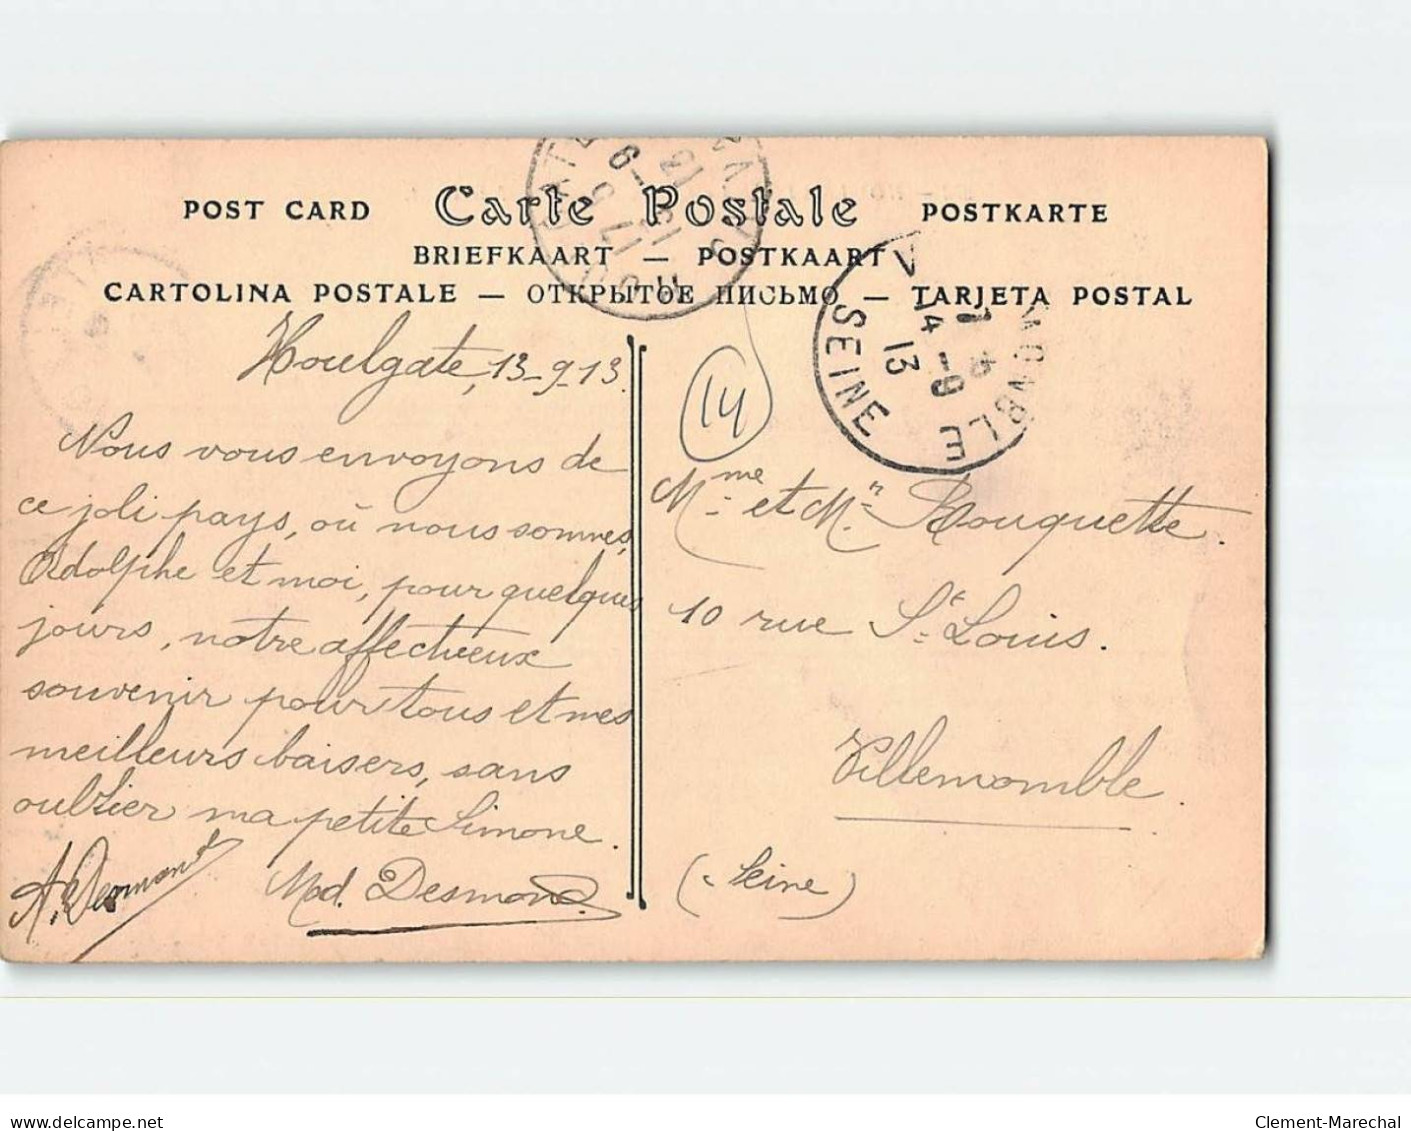 POST CARD Carte Postale POSTKARTE
BRIEFKAART — POSTKAART
CARTOLINA POSTALE — ОТКРЫТОЕ ПИСЬМО — TARJETA POSTAL
Houlgate, 13-9-13.
Nous vous envoyons de
ce joli pays, où nous sommes,
Adolphe et moi, pour quelques
jours, notre affectueux
souvenir pour tous et mes
meilleurs baisers, sans
oublier ma petite Simone.
A. Desmont
Mad. Desmond.
14
SEINE
7
14-9
13
Mme et Mr Rouquette.
10 rue St Louis.
Villemomble.
(Seine)
www.delcampe.net
Clement-Marechal